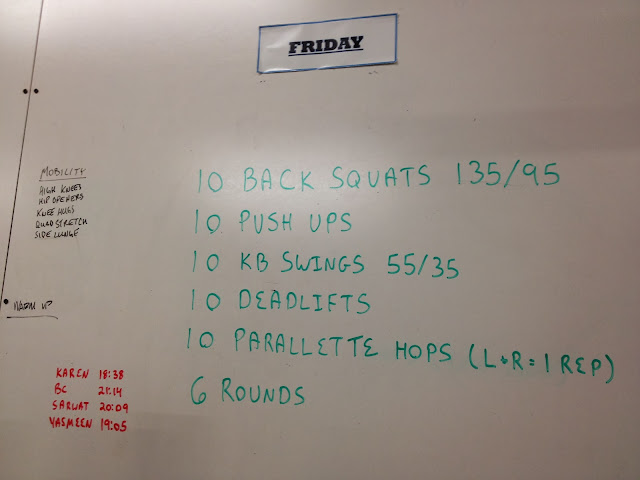 FRIDAY
MOBILITY
HIGH KNEES
HIP OPENERS
KNEE HUGS
QUAD STRETCH
SIDE LUNGE
WARM UP
10 BACK SQUATS 135/95
10 PUSH UPS
10 KB SWINGS 55/35
10 DEADLIFTS
10 PARALLETTE HOPS (L+R=1 REP)
6 ROUNDS
KAREN 18:38
BC 21:14
SARWAT 20:09
YASMEEN 19:05